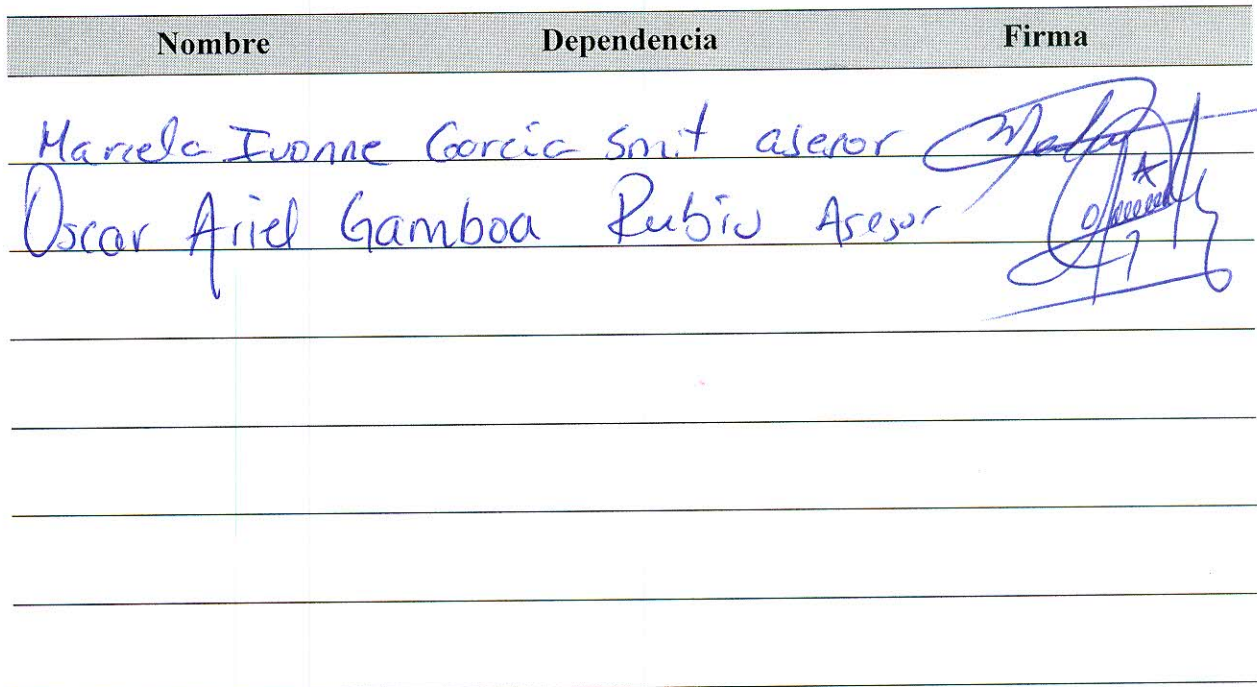 Nombre Dependencia Firma
Marcela Ivonne Garcia Smit asesor
Oscar Ariel Gamboa Rubio Asesor